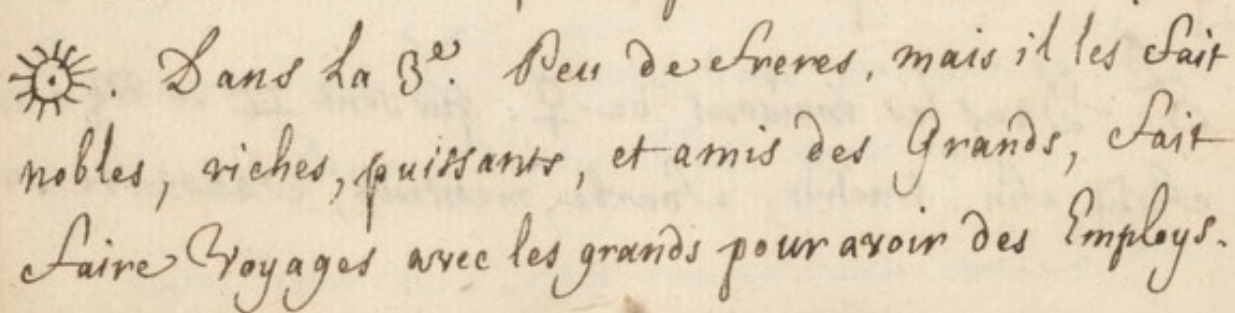 ☉. Dans la 3e. Peu de freres, mais il les fait
nobles, riches, puissants, et amis des Grands, fait
faire Voyages avec les grands pour avoir des Employs.